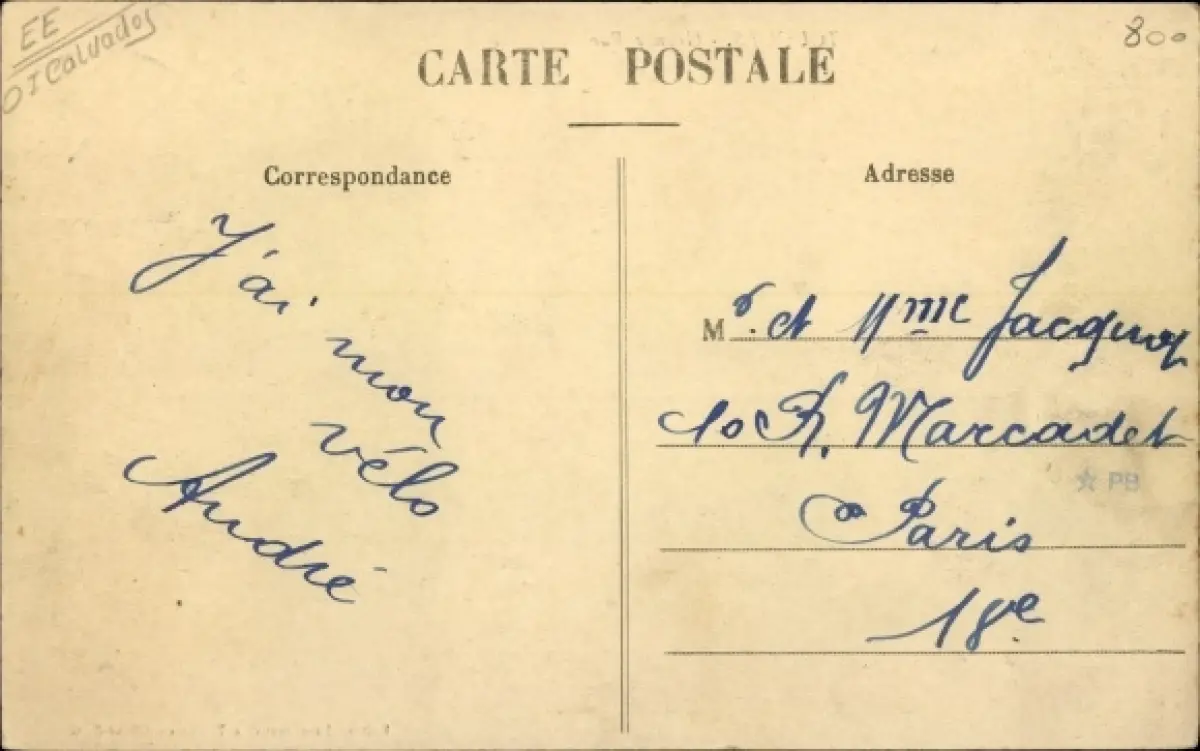 EE
OI Calvados
800
CARTE POSTALE
Correspondance
J'ai
mon
vélo
André
Adresse
Mr et Mme Jacquot
10 R. Marcadet
à Paris
18e
☆ PB